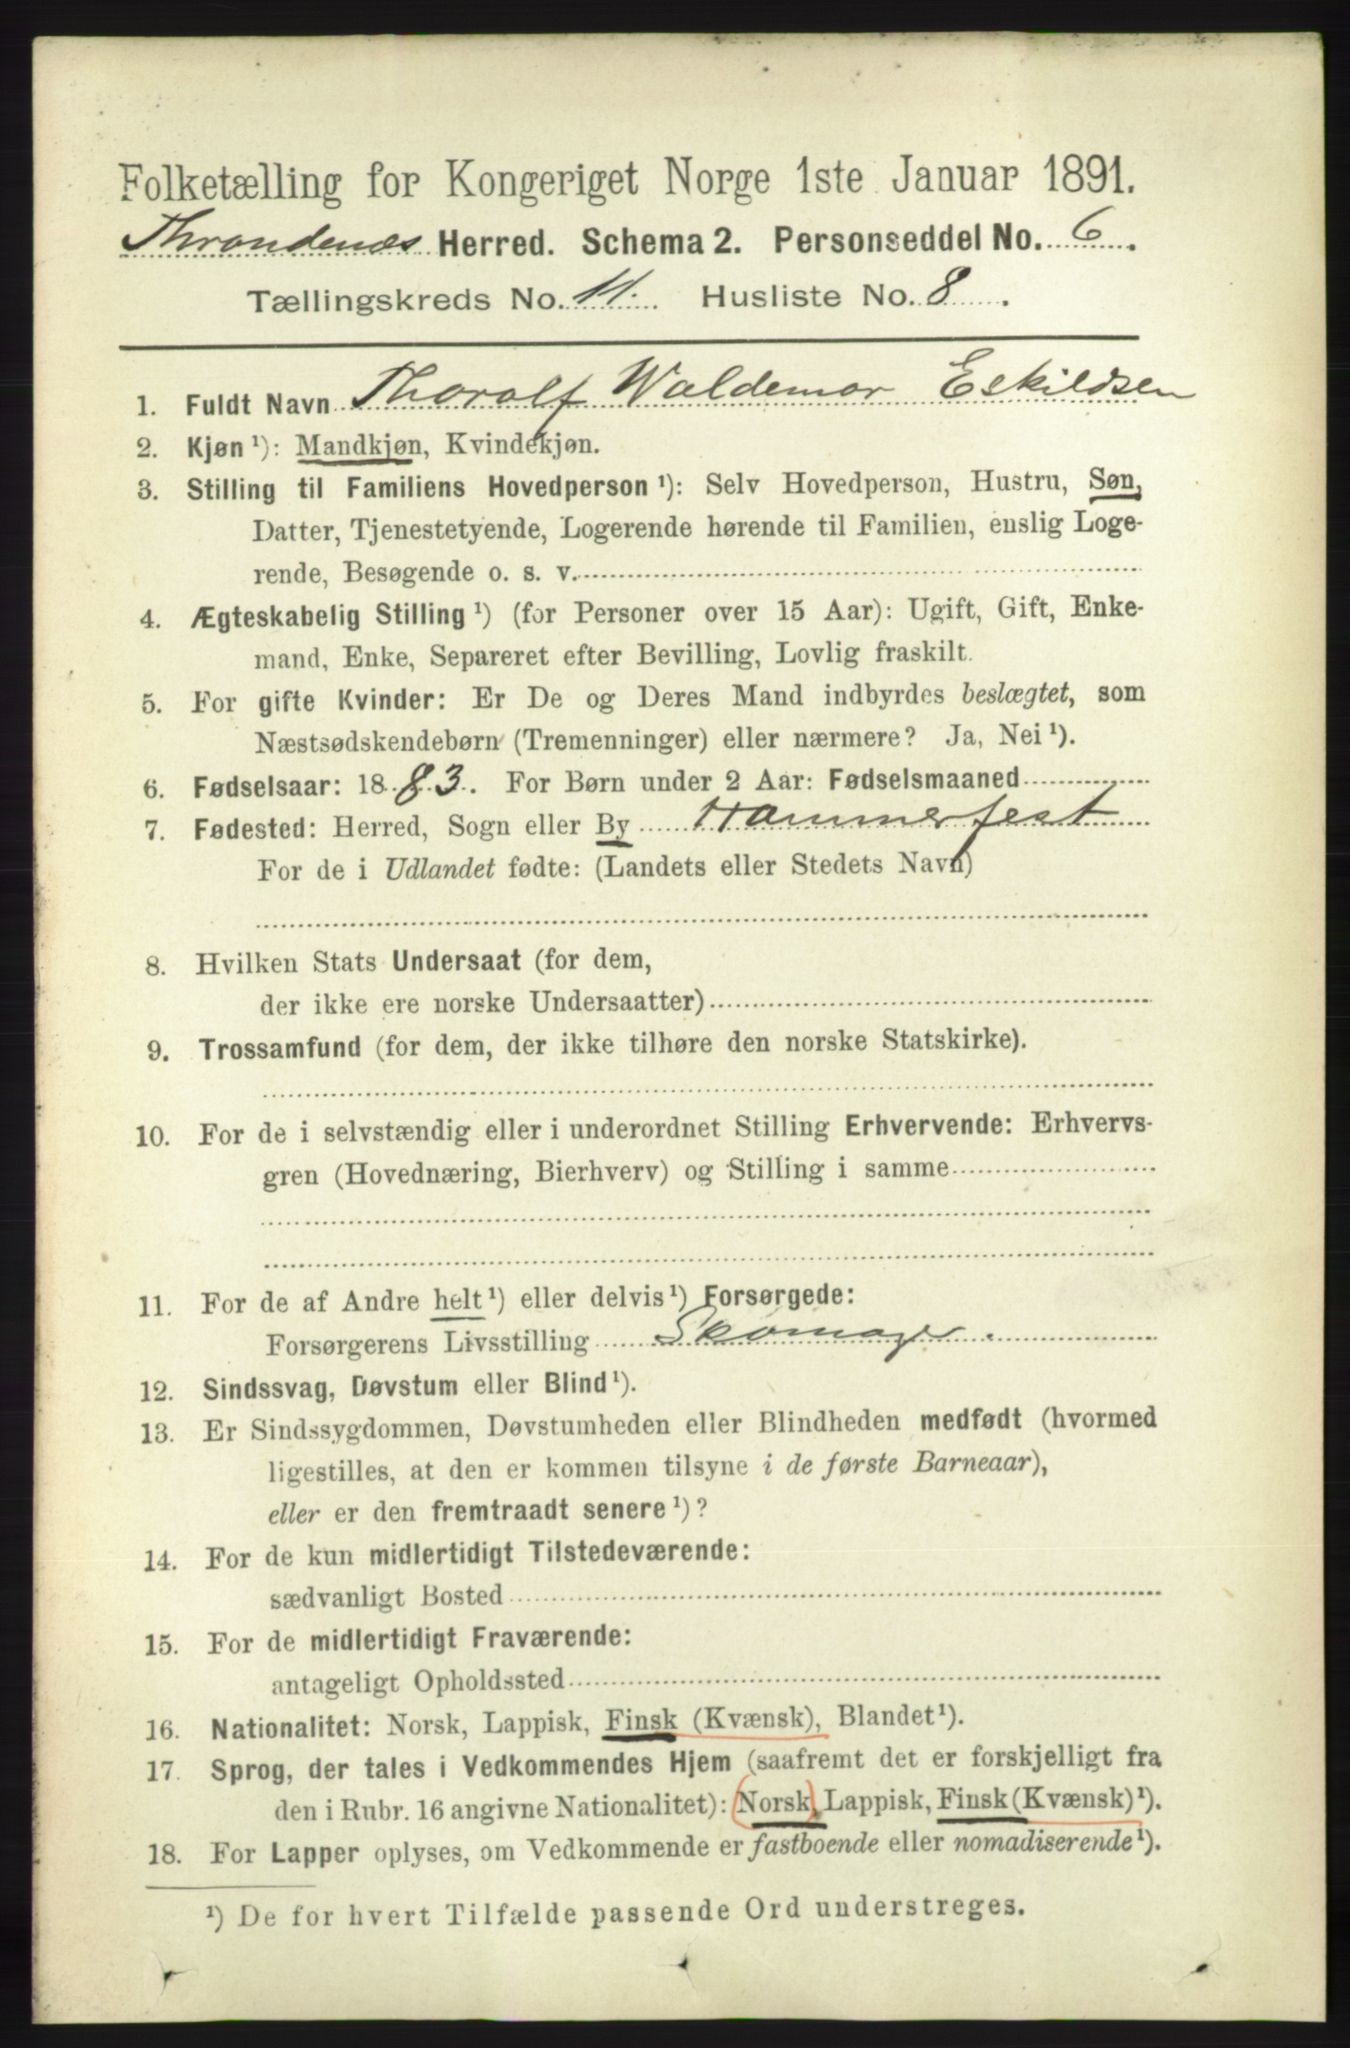 Folketælling for Kongeriget Norge 1ste Januar 1891.
Throndenæs Herred. Schema 2. Personseddel No. 6.
Tællingskreds No. 11. Husliste No. 8.
1. Fuldt Navn Thoralf Waldemar Eskildsen
2. Kjøn ¹): Mandkjøn, Kvindekjøn.
3. Stilling til Familiens Hovedperson ¹): Selv Hovedperson, Hustru, Søn,
Datter, Tjenestetyende, Logerende hørende til Familien, enslig Loge-
rende, Besøgende o. s. v.
4. Ægteskabelig Stilling ¹) (for Personer over 15 Aar): Ugift, Gift, Enke-
mand, Enke, Separeret efter Bevilling, Lovlig fraskilt.
5. For gifte Kvinder: Er De og Deres Mand indbyrdes beslægtet, som
Næstsødskendebørn (Tremenninger) eller nærmere? Ja, Nei ¹).
6. Fødselsaar: 1883. For Børn under 2 Aar: Fødselsmaaned
7. Fødested: Herred, Sogn eller By Hammerfest
For de i Udlandet fødte: (Landets eller Stedets Navn)
8. Hvilken Stats Undersaat (for dem,
der ikke ere norske Undersaatter)
9. Trossamfund (for dem, der ikke tilhøre den norske Statskirke).
10. For de i selvstændig eller i underordnet Stilling Erhvervende: Erhvervs-
gren (Hovednæring, Bierhverv) og Stilling i samme
11. For de af Andre helt ¹) eller delvis ¹) Forsørgede:
Forsørgerens Livsstilling Skomager.
12. Sindssvag, Døvstum eller Blind ¹).
13. Er Sindssygdommen, Døvstumheden eller Blindheden medfødt (hvormed
ligestilles, at den er kommen tilsyne i de første Barneaar),
eller er den fremtraadt senere ¹)?
14. For de kun midlertidigt Tilstedeværende:
sædvanligt Bosted
15. For de midlertidigt Fraværende:
antageligt Opholdssted
16. Nationalitet: Norsk, Lappisk, Finsk (Kvænsk), Blandet ¹).
17. Sprog, der tales i Vedkommendes Hjem (saafremt det er forskjelligt fra
den i Rubr. 16 angivne Nationalitet): Norsk, Lappisk, Finsk (Kvænsk) ¹).
18. For Lapper oplyses, om Vedkommende er fastboende eller nomadiserende ¹).
¹) De for hvert Tilfælde passende Ord understreges.